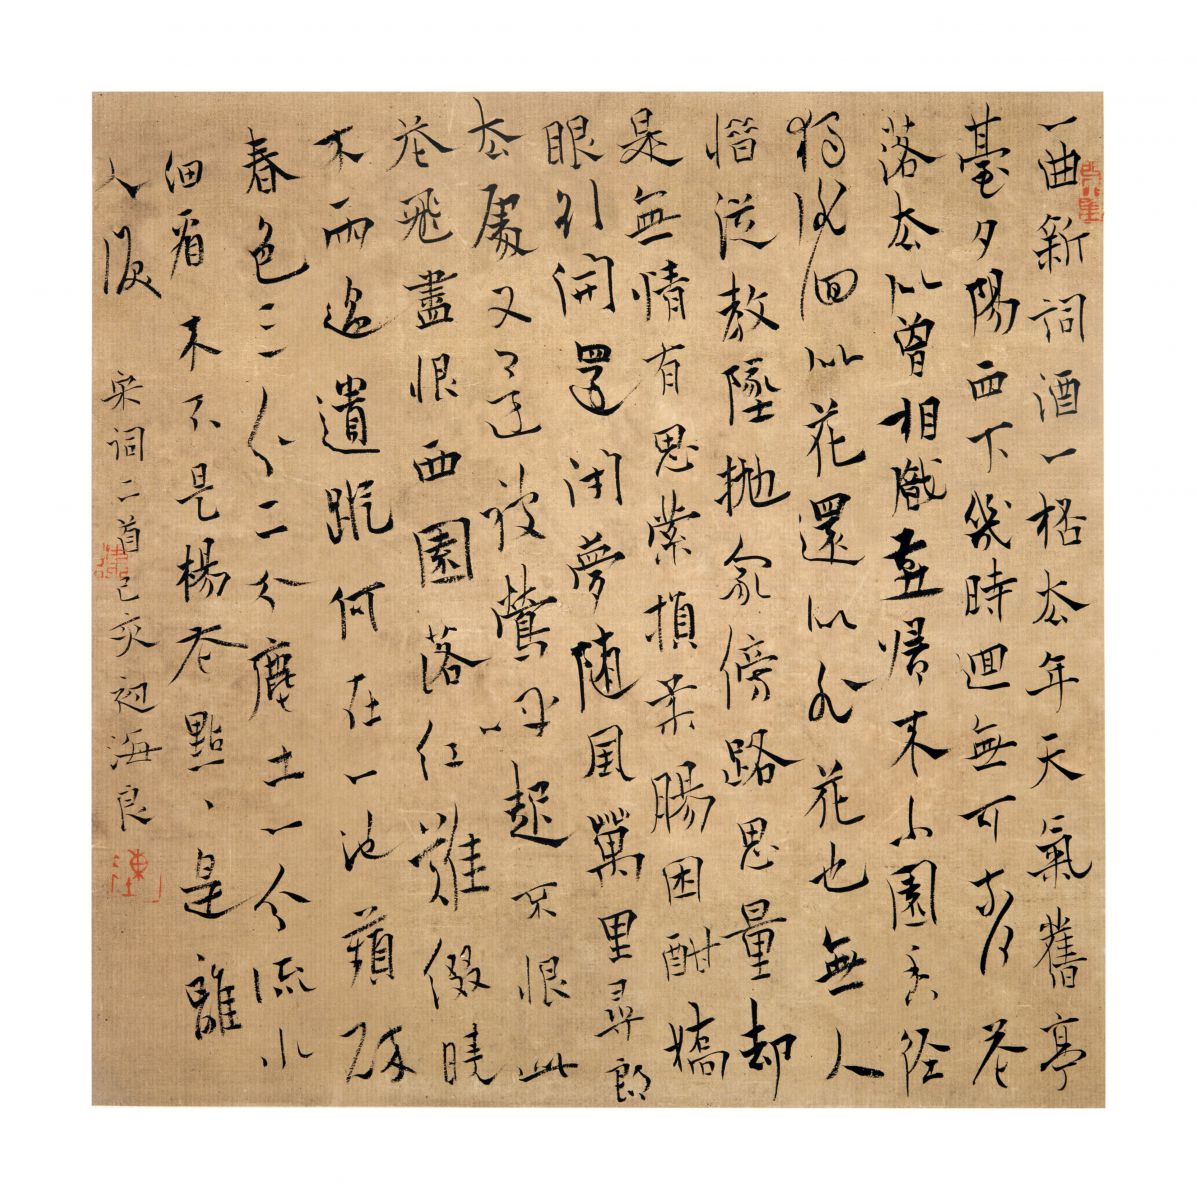 一曲新詞酒一桮去年天氣舊亭
臺夕陽西下幾時迴無可奈何花
落去似曾相識燕歸來小園香徑
獨徘徊似花還似非花也無人
惜從教墜拋家傍路思量却
是無情有思縈損柔腸困酣嬌
眼欲開還閉夢隨風萬里尋郎
去處又還被鶯呼起不恨此
花飛盡恨西園落紅難綴曉
來雨過遺蹤何在一池蘋碎
春色三分二分塵土一分流水
細看來不是楊花點、是離
人淚
宋詞二首己亥初海良